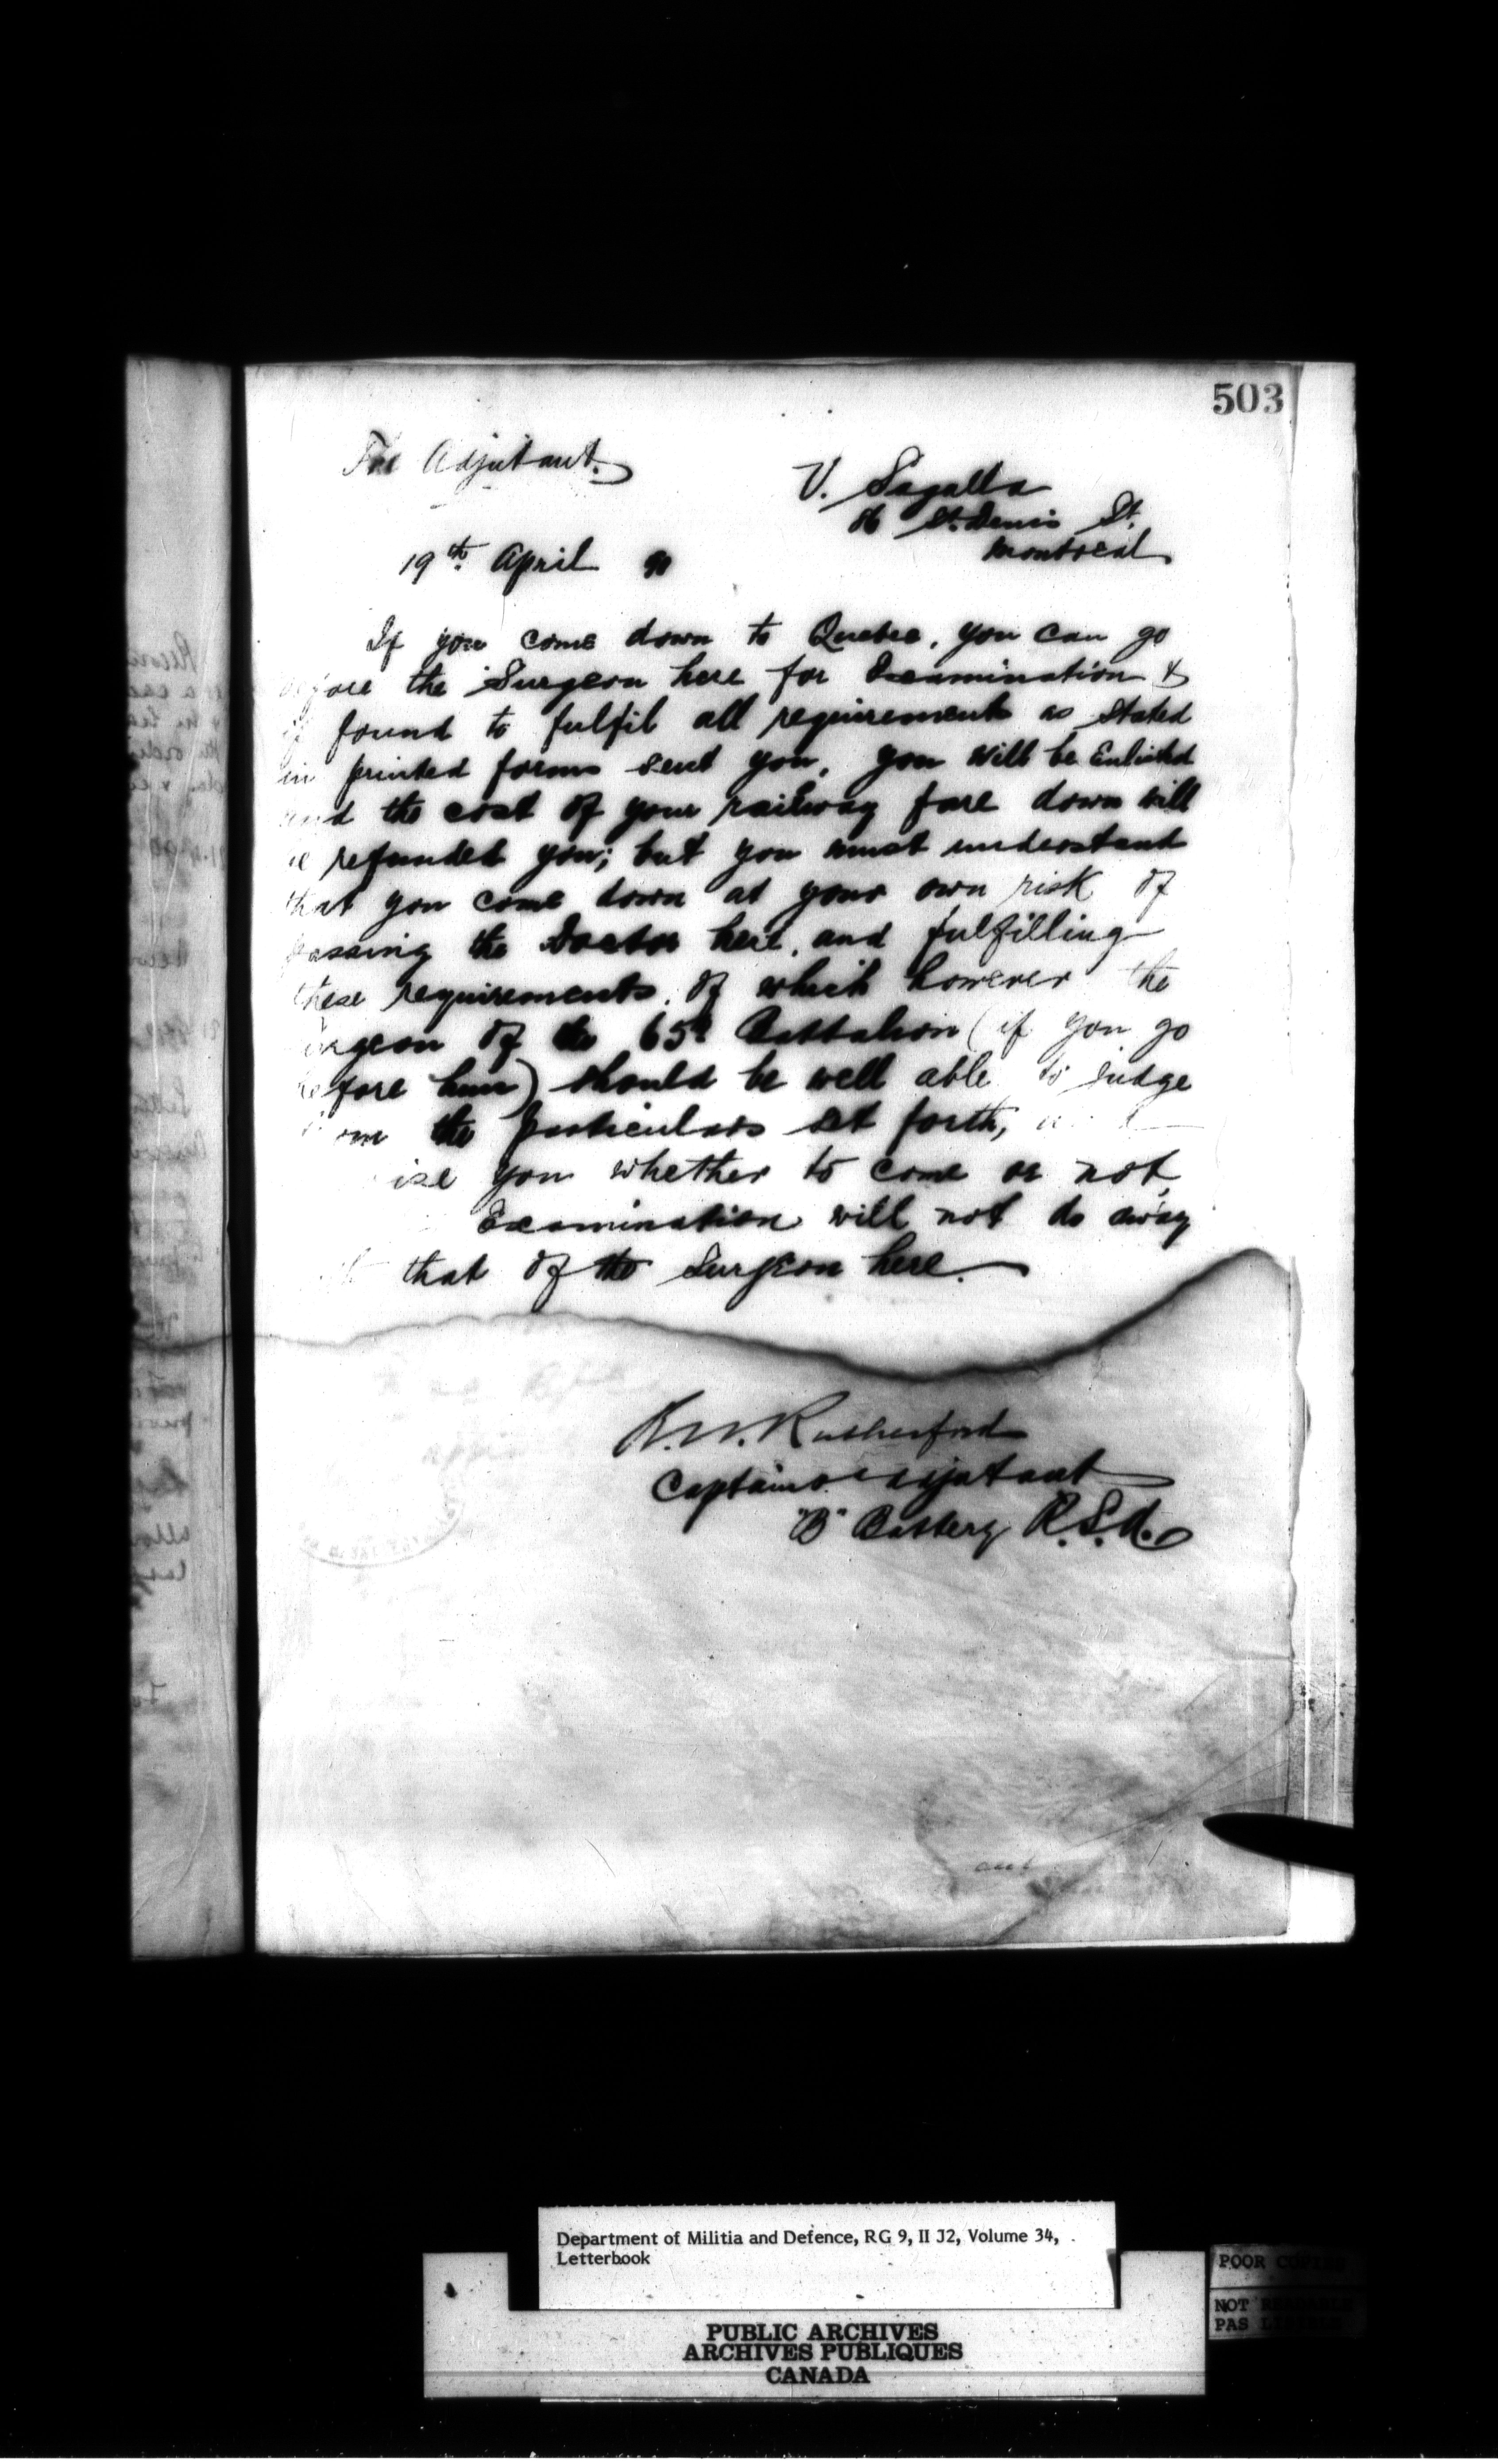 503
The Adjutant.
V. Sagalla
86 St. Denis St.
Montreal
19th April 90
If you come down to Quebec, you can go
before the Surgeon here for Examination &
if found to fulfil all requirements as stated
in printed forms sent you, you will be Enlisted
and the cost of your railway fare down will
be refunded you; but you must understand
that you come down at your own risk of
passing the Doctor here, and fulfilling
these requirements, of which however the
Surgeon of the 65th Battalion (if you go
before him) should be well able to judge
from the particulars set forth,
ise you whether to come or not,
Examination will not do away
that of the Surgeon here.
Rutherford
Captain & Adjutant
"B" Battery R.S.A.
Department of Militia and Defence, RG 9, II J2, Volume 34,
Letterbook
PUBLIC ARCHIVES
ARCHIVES PUBLIQUES
CANADA
POOR
NOT
PAS